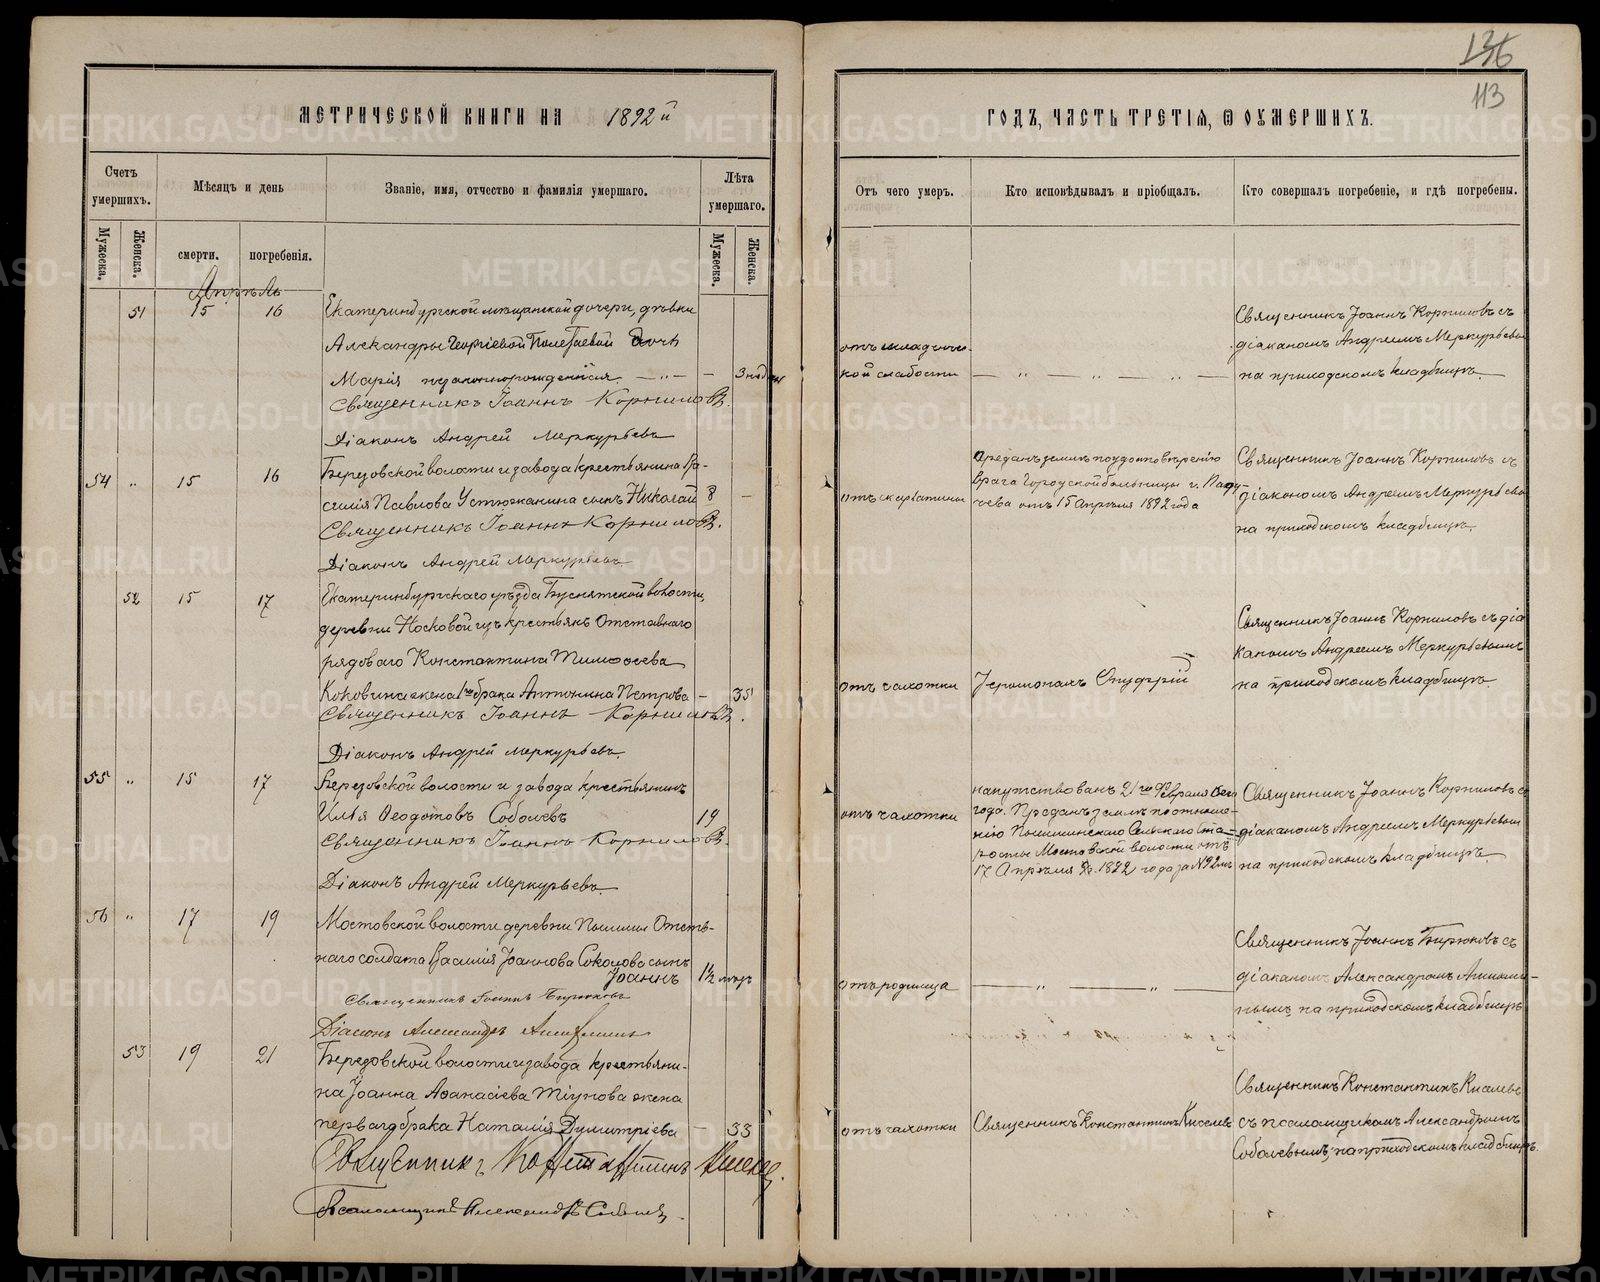 136
113
МЕТРИЧЕСКОЙ КНИГИ НА 1892й
ГОДЪ, ЧАСТЬ ТРЕТІЯ, Ѿ ОУМЕРШИХЪ.
Счетъ умершихъ.
Мѣсяцъ и день
Званіе, имя, отчество и фамилія умершаго.
Лѣта умершаго.
Мужеска.
Женска.
смерти.
погребенія.
Мужеска.
Женска.
Отъ чего умеръ.
Кто исповѣдывалъ и пріобщалъ.
Кто совершалъ погребеніе, и гдѣ погребены.
Апрѣль
51 15 16 Екатеринбургской мѣщанской дочери, дѣвки
Александры Георгіевой Полетаевой дочь
Марія незаконнорожденная — „ — — 3 нед
Священникъ Іоаннъ Корниловъ.
Діаконъ Андрей Меркурьевъ
отъ младенче-
ской слабости — „ — „ — „ —
Священникъ Іоаннъ Корниловъ съ
діакономъ Андреемъ Меркурьевым
на приходскомъ кладбищѣ.
54 „ 15 16 Березовской волости и завода крестьянина Ва-
силія Павлова Устюжанина сынъ Николай 8 —
Священникъ Іоаннъ Корниловъ.
Діаконъ Андрей Меркурьевъ
отъ скарлатины
Преданъ землѣ по удостовѣренію
врача Городской больницы г. Паду-
чева отъ 15 Апрѣля 1892 года
Священникъ Іоаннъ Корниловъ съ
діакономъ Андреемъ Меркурьевы
на приходскомъ кладбищѣ.
52 15 17 Екатеринбургскаго уѣзда волости,
деревни Носковой изъ крестьянъ Отставнаго
рядоваго Константина Тимоѳеева
Коковина жена 1го брака Антонина Петрова — 35
Священникъ Іоаннъ Корниловъ.
Діаконъ Андрей Меркурьевъ.
отъ чахотки
Іеромонахъ Онуфрій
Священникъ Іоаннъ Корниловъ съ діа
кономъ Андреемъ Меркурьевымъ
на приходскомъ кладбищѣ.
55 „ 15 17 Березовской волости и завода крестьянинъ
Илья Ѳеодотовъ Соболевъ 19
Священникъ Іоаннъ Корниловъ.
Діаконъ Андрей Меркурьевъ.
отъ чахотки
напутствованъ 21го Февраля сего
года. Преданъ землѣ по отноше-
нію Пышминскаго Сельскаго Ста-
росты Мостовской волости отъ
17 Апрѣля 1892 года за №92мъ
Священникъ Іоаннъ Корниловъ съ
діакономъ Андреемъ Меркурьевым
на приходскомъ кладбищѣ.
56 „ 17 19 Мостовской волости деревни Пышмы Отстав-
наго солдата Василія Іоаннова Соколова сынъ
Іоаннъ 1½ мѣсц
Священникъ Іоаннъ Бирюковъ
Діаконъ Александръ
отъ родимца — „ — „ —
Священникъ Іоаннъ Бирюковъ съ
діакономъ Александромъ
на приходскомъ кладбищѣ
53 19 21 Березовской волости и завода крестьяни-
на Іоанна Аѳанасіева Тіунова жена
перваго брака Наталія Димитріева — 33
Священникъ Константинъ Киселевъ.
Псаломщикъ Александръ Соболевъ
отъ чахотки
Священникъ Константинъ Киселевъ
Священникъ Константинъ Киселевъ
съ псаломщикомъ Александромъ
Соболевымъ, на приходскомъ кладбищѣ.
METRIKI.GASO-URAL.RU